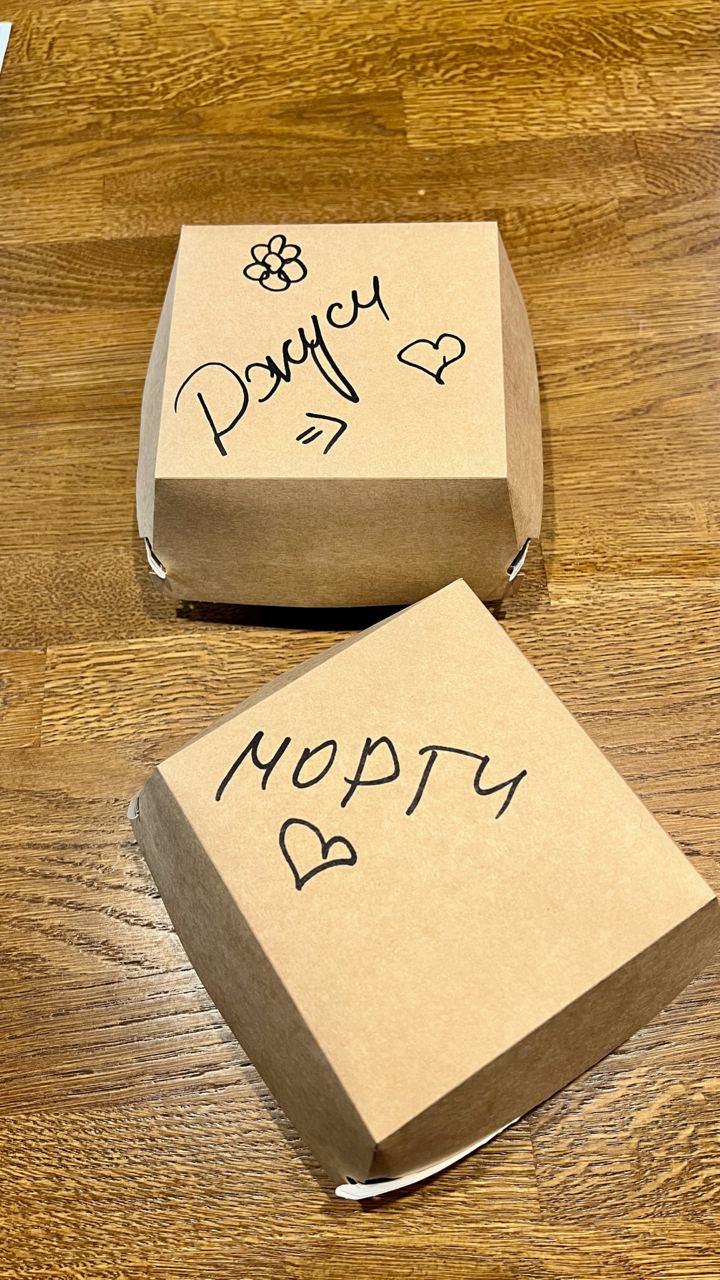 Джуси
=>
МОРТИ